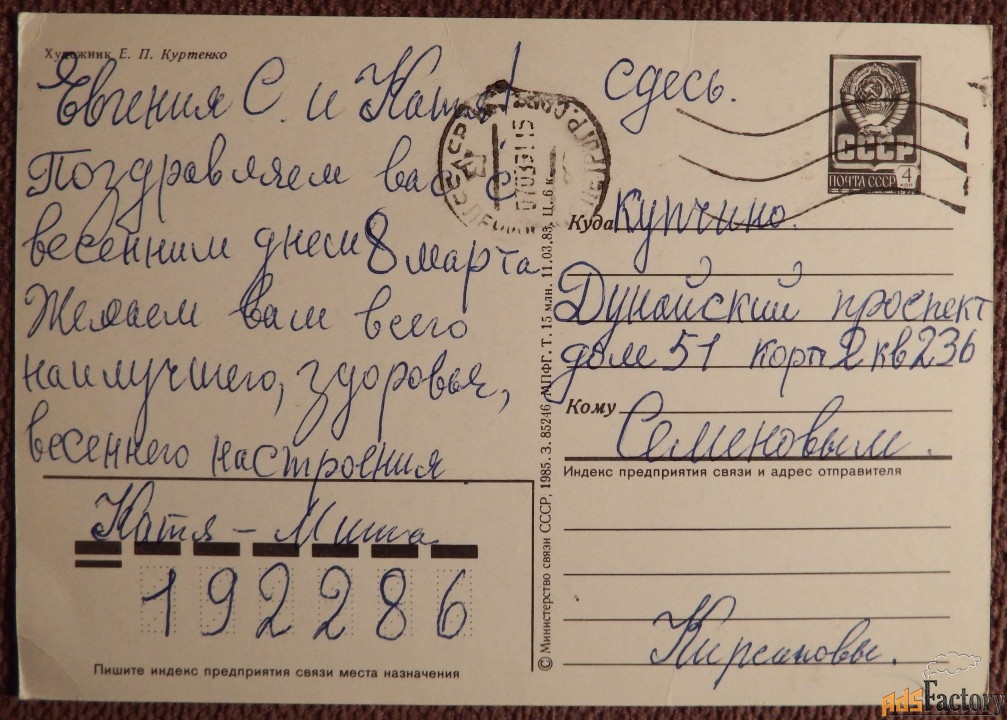 Художник Е. П. Куртенко
Евгения С. и Катя!
Поздравляем вас с
весенним днем 8 марта
Желаем вам всего
наилучшего, здоровья,
весеннего настроения
Катя - Миша.
192286
Пишите индекс предприятия связи места назначения
© Министерство связи СССР, 1985. З. 85246. МПФГ. Т. 15 млн. 11.03.85. Ц. 6 к.
сдесь.
СССР
ПОЧТА СССР 4 коп
Куда Купчино.
Дунайский проспект
дом 51 корп 2 кв 236
Кому
Семеновым.
Индекс предприятия связи и адрес отправителя
Кирсановы.
AdsFactory